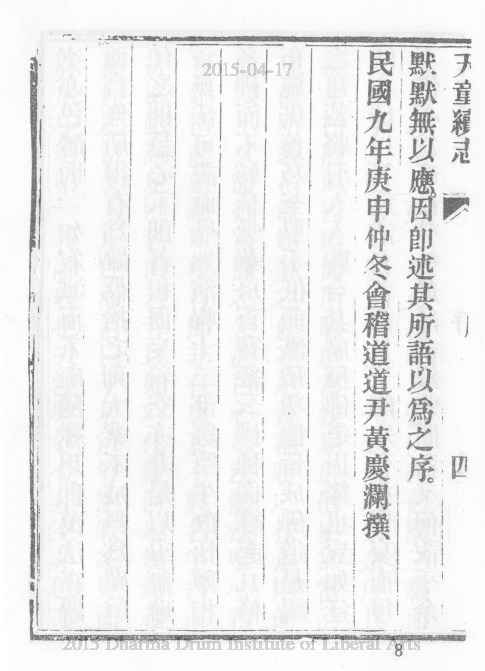 天童續志
四
默默無以應。因卽述其所語以爲之序。
民國九年庚申仲冬會稽道道尹黃慶瀾撰
2015-04-17
2015 Dharma Drum Institute of Liberal Arts
8